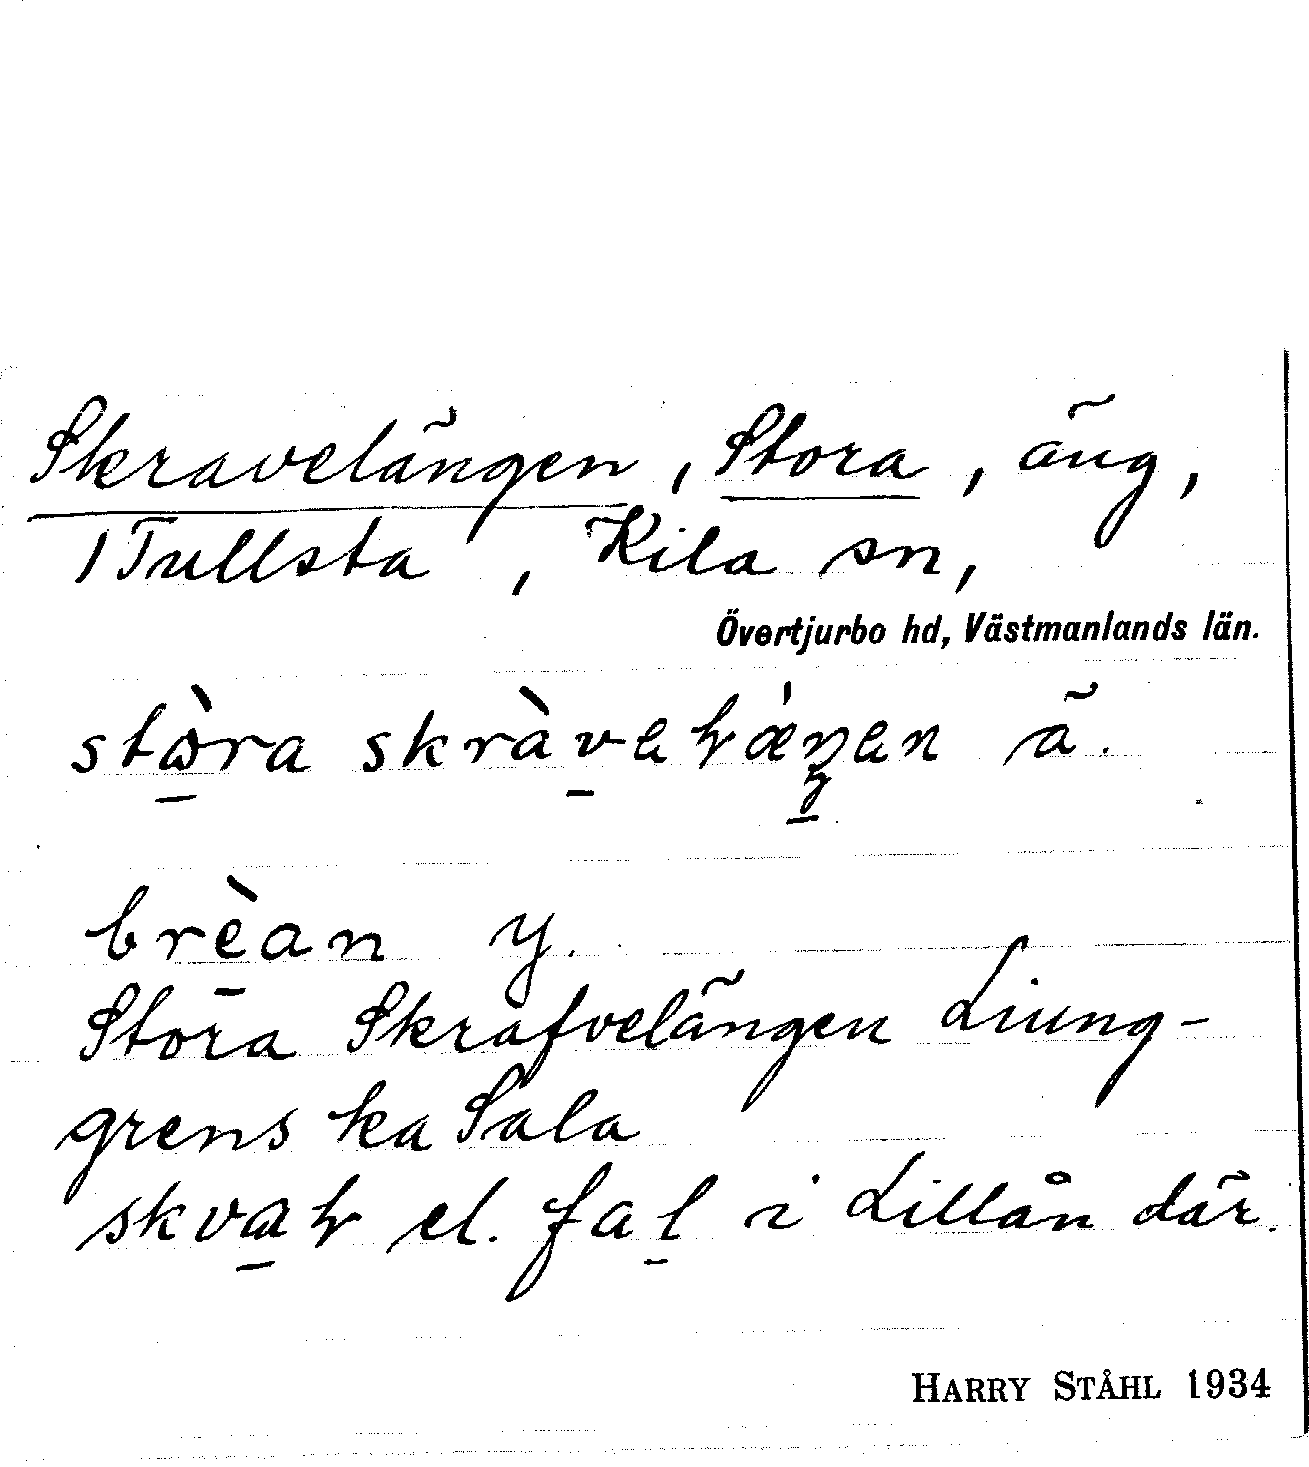 Skravelängen, Stora, äng,
1 Tullsta, Kila sn,
Övertjurbo hd, Västmanlands län.
stòra skràveɫæ̀ŋen ä.
brèan y.
Stora Skrafvelängen Liung-
grenska Sala
skvaɫ el. fal i Lillån där.
HARRY STÅHL 1934